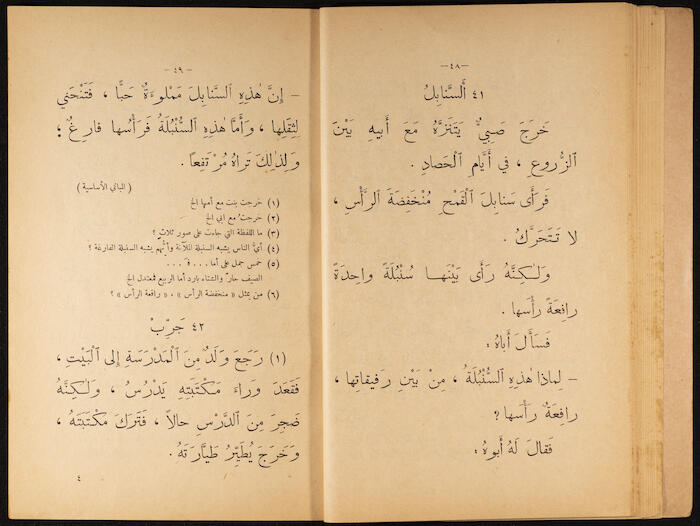 -٤٨-
٤١ أَلسَّنابِلُ
خَرَجَ صَبِيٌّ يَتَنَزَّهُ مَعَ أَبيهِ بَيْنَ
الزُّروعِ ، في أَيَّامِ الْحَصادِ .
فَرَأَى سَنابِلَ الْقَمْحِ مُنْخَفِضَةَ الرَّأْسِ ،
لا تَتَحَرَّكُ .
وَلٰكِنَّهُ رَأَى بَيْنَها سُنْبُلَةً واحِدَةً
رافِعَةً رَأْسَها .
فَسَأَلَ أَباهُ :
– لِماذا هٰذِهِ السُّنْبُلَةُ ، مِنْ بَيْنِ رَفيقاتِها ،
رافِعَةٌ رَأْسَها ؟
فَقالَ لَهُ أَبوهُ :
-٤٩-
– إِنَّ هٰذِهِ السَّنابِلَ مَمْلوءَةٌ حَبًّا ، فَتَنْحَني
لِثِقَلِها ، وَأَمَّا هٰذِهِ السُّنْبُلَةُ فَرَأْسُها فارِغٌ ؛
وَلِذٰلِكَ تَراهُ مُرْتَفِعًا .
( المباني الأساسية )
(١) خرجت بنت مع أمها الخ
(٢) خرجتُ مع ابي الخ
(٣) ما اللفظة التي جاءت على صور ثلاث ؟
(٤) أيُّ الناس يشبه السنبلة الملآنة وأيُّهم يشبه السنبلة الفارغة ؟
(٥) خمس جمل على أما . . . فَـ . . .
الصيف حارّ والشتاء بارد أما الربيع فمعتدل الخ
(٦) من يمثل « منخفضة الرأس » ، « رافعة الرأس » ؟
٤٢ جَرِّبْ
(١) رَجَعَ وَلَدٌ مِنَ الْمَدْرَسَةِ إِلى الْبَيْتِ ،
فَقَعَدَ وَراءَ مَكْتَبَتِهِ يَدْرُسُ ، وَلٰكِنَّهُ
ضَجِرَ مِنَ الدَّرْسِ حالاً ، فَتَرَكَ مَكْتَبَتَهُ ،
وَخَرَجَ يُطَيِّرُ طَيَّارَتَهُ .
٤